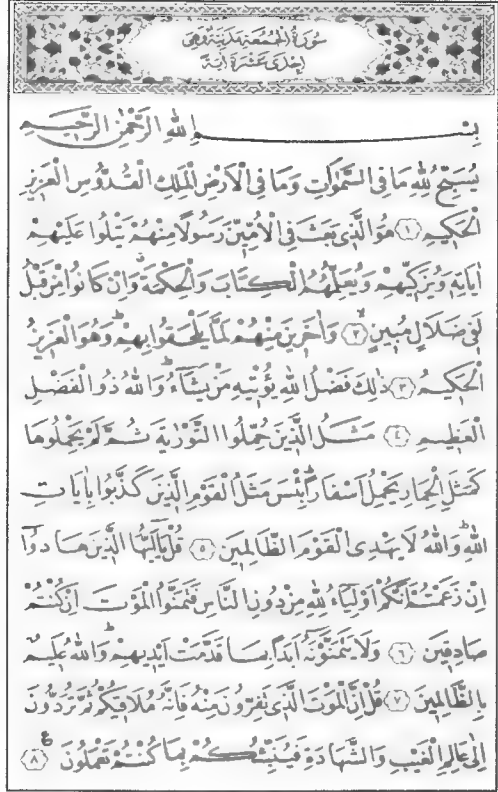 سُورَةُ الْجُمُعَةِ مَدَنِيَّةٌ وَهِيَ
اِحْدٰى عَشْرَةَ اٰيَةً
بِسْمِ اللهِ الرَّحْمٰنِ الرَّحِيمِ
يُسَبِّحُ لِلّٰهِ مَا فِى السَّمٰوَاتِ وَمَا فِى الْاَرْضِ الْمَلِكِ الْقُدُّوسِ الْعَزِيزِ
الْحَكِيمِ ﴿١﴾ هُوَ الَّذِى بَعَثَ فِى الْاُمِّيِّنَ رَسُولًا مِنْهُمْ يَتْلُوا عَلَيْهِمْ
اٰيَاتِهِ وَيُزَكِّيهِمْ وَيُعَلِّمُهُمُ الْكِتَابَ وَالْحِكْمَةَ وَاِنْ كَانُوا مِنْ قَبْلُ
لَفِى ضَلَالٍ مُبِينٍ ﴿٢﴾ وَاٰخَرِينَ مِنْهُمْ لَمَّا يَلْحَقُوا بِهِمْ وَهُوَ الْعَزِيزُ
الْحَكِيمُ ﴿٣﴾ ذٰلِكَ فَضْلُ اللهِ يُؤْتِيهِ مَنْ يَشَاءُ وَاللهُ ذُو الْفَضْلِ
الْعَظِيمِ ﴿٤﴾ مَثَلُ الَّذِينَ حُمِّلُوا التَّوْرٰيةَ ثُمَّ لَمْ يَحْمِلُوهَا
كَمَثَلِ الْحِمَارِ يَحْمِلُ اَسْفَارًا بِئْسَ مَثَلُ الْقَوْمِ الَّذِينَ كَذَّبُوا بِاٰيَاتِ
اللهِ وَاللهُ لَا يَهْدِى الْقَوْمَ الظَّالِمِينَ ﴿٥﴾ قُلْ يَاۤ اَيُّهَا الَّذِينَ هَادُوۤا
اِنْ زَعَمْتُمْ اَنَّكُمْ اَوْلِيَاءُ لِلّٰهِ مِنْ دُونِ النَّاسِ فَتَمَنَّوُا الْمَوْتَ اِنْ كُنْتُمْ
صَادِقِينَ ﴿٦﴾ وَلَا يَتَمَنَّوْنَهُ اَبَدًا بِمَا قَدَّمَتْ اَيْدِيهِمْ وَاللهُ عَلِيمٌ
بِالظَّالِمِينَ ﴿٧﴾ قُلْ اِنَّ الْمَوْتَ الَّذِى تَفِرُّونَ مِنْهُ فَاِنَّهُ مُلَاقِيكُمْ ثُمَّ تُرَدُّونَ
اِلٰى عَالِمِ الْغَيْبِ وَالشَّهَادَةِ فَيُنَبِّئُكُمْ بِمَا كُنْتُمْ تَعْمَلُونَ ﴿٨﴾ ع